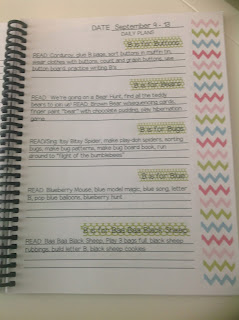 DATE September 9 - 13
DAILY PLANS
B is for Buttons
READ: Corduroy, give & page, sort buttons in muffin tin,
wear clothes with buttons, count and graph buttons, use
button board, practice writing B's
B is for Bears
READ: We're going on a Bear Hunt, find all the teddy
bears to join us! READ: Brown Bear w/sequencing cards,
finger paint "bear" with chocolate pudding, play hibernation
game.
B is for Bugs
READ/Sing: Itsy Bitsy Spider, make play-doh spiders, sorting
bugs, make bug patterns, make bug board book, run
around to "flight of the bumblebees"
B is for Blue
READ: Blueberry Mouse, blue model magic, blue song, letter
B, pop blue balloons, blueberry hunt
B is for Baa Baa Black Sheep
READ: Baa Baa Black Sheep, Play 3 bags full, black sheep
rubbings, build letter B, black sheep cookies